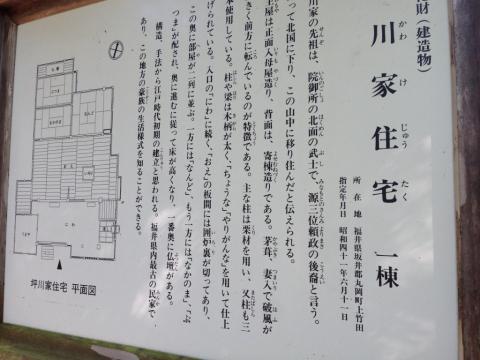 財(建造物)
川家住宅 一棟
かわ け じゅう たく
所在地 福井県坂井郡丸岡町上竹田
指定年月日 昭和四十一年六月十一日
川家の先祖は、院御所の北面の武士で、源三位頼政の後裔と言う。
って北国に下り、この山中に移り住んだと伝えられる。
屋は正面入母屋造り、背面は、寄棟造りである。茅葺、妻入で破風が
きく前方に転んでいるのが特徴である。主な柱は栗材を用い、又柱も三
本使用している。柱や梁は木柄が太く、「ちょうな」「やりがんな」を用いて仕上
げられている。入口の、「にわ」に続く、「おえ」の板間には囲炉裏が切ってあり、
この奥に部屋が二列に並ぶ。一方には、「なんど」、もう一方には「なかのま」、「ぶ
つま」が配され、奥に進むに従って床が高くなり、一番奥に仏壇がある。
構造、手法から江戸時代初期の建立と思われる。福井県内最古の民家で
あり、この地方の豪族の生活様式を知ることができる。
坪川家住宅 平面図